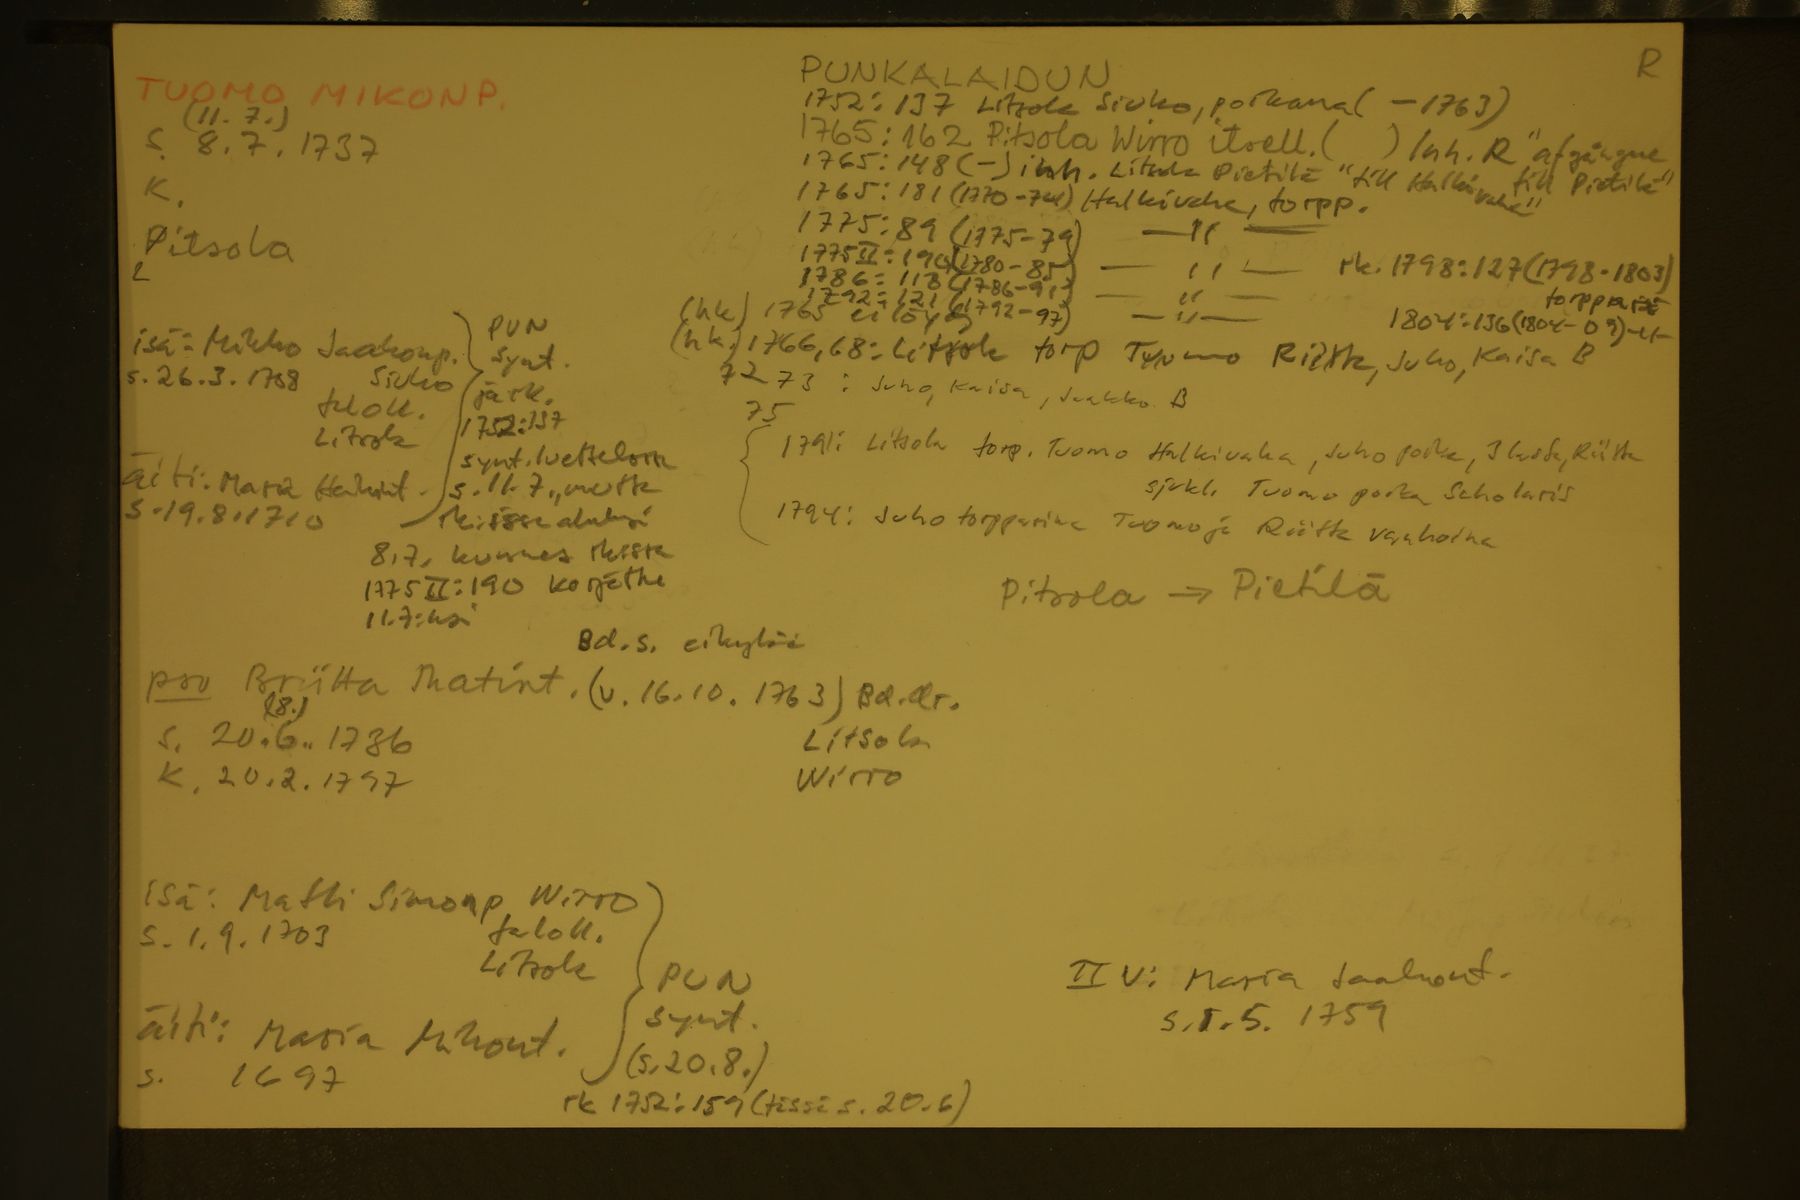 TUOMO MIKONP.
(11.7.)
s. 8.7.1737
K.
Pitsola
isä: Mikko Jaakonp.
s. 26.3.1708 Sivko
taloll.
Litsola
äiti: Maria Heikint.
s. 19.8.1710
PUN
synt.
järk.
1752:137
synt. luettelossa
s. 11.7., mutta
rk:issa aluksi
8.7., kunnes rkissa
1775 II:190 korjattu
11.7:ksi
R
PUNKALAIDUN
1752:137 Litsola Sivko, poikana ( -1763)
1765:162 Pitsola Wirro itsell. ( ) Inh. R "afgångne
1765:148 (-) inh. Litsola Pietilä "till Halkivaha" till Pietilä"
1765:181 (1770-74) Halkivaha, torpp.
1775:89 (1775-79) —"—
1775 II:190 (1780-85) —"— rk. 1798:127 (1798-1803)
1786:118 (1786-91) —"— torpparia
1792:121 (1792-97) —"— 1804:136 (1804-09) -"-
(hk) 1765 ei löydy
(hk.) 1766, 68: Litsola torp Tuomo Riitta, Juho, Kaisa B
72 73: Juho, Kaisa, Jaakko B
75
1791: Litsola torp. Tuomo Halkivaha, Juho poika, Riitta
sjukl. Tuomo poika Scholaris
1794: Juho torpparina Tuomo ja Riitta vanhoina
Pitsola → Pietilä
Bd. s.
pso Briitta Matint. (v. 16.10.1763) Bd. dr.
(8.)
s. 20.6.1736 Litsola
K. 20.2.1797 Wirro
isä: Matti Simonp Wirro
s. 1.9.1703 taloll.
Litsola
äiti: Maria Mikont.
s. 1697
PUN
synt.
(s. 20.8.)
rk 1752:159 (tässä s. 20.6)
II V: Maria Jaakont.
s. 1.5. 1759